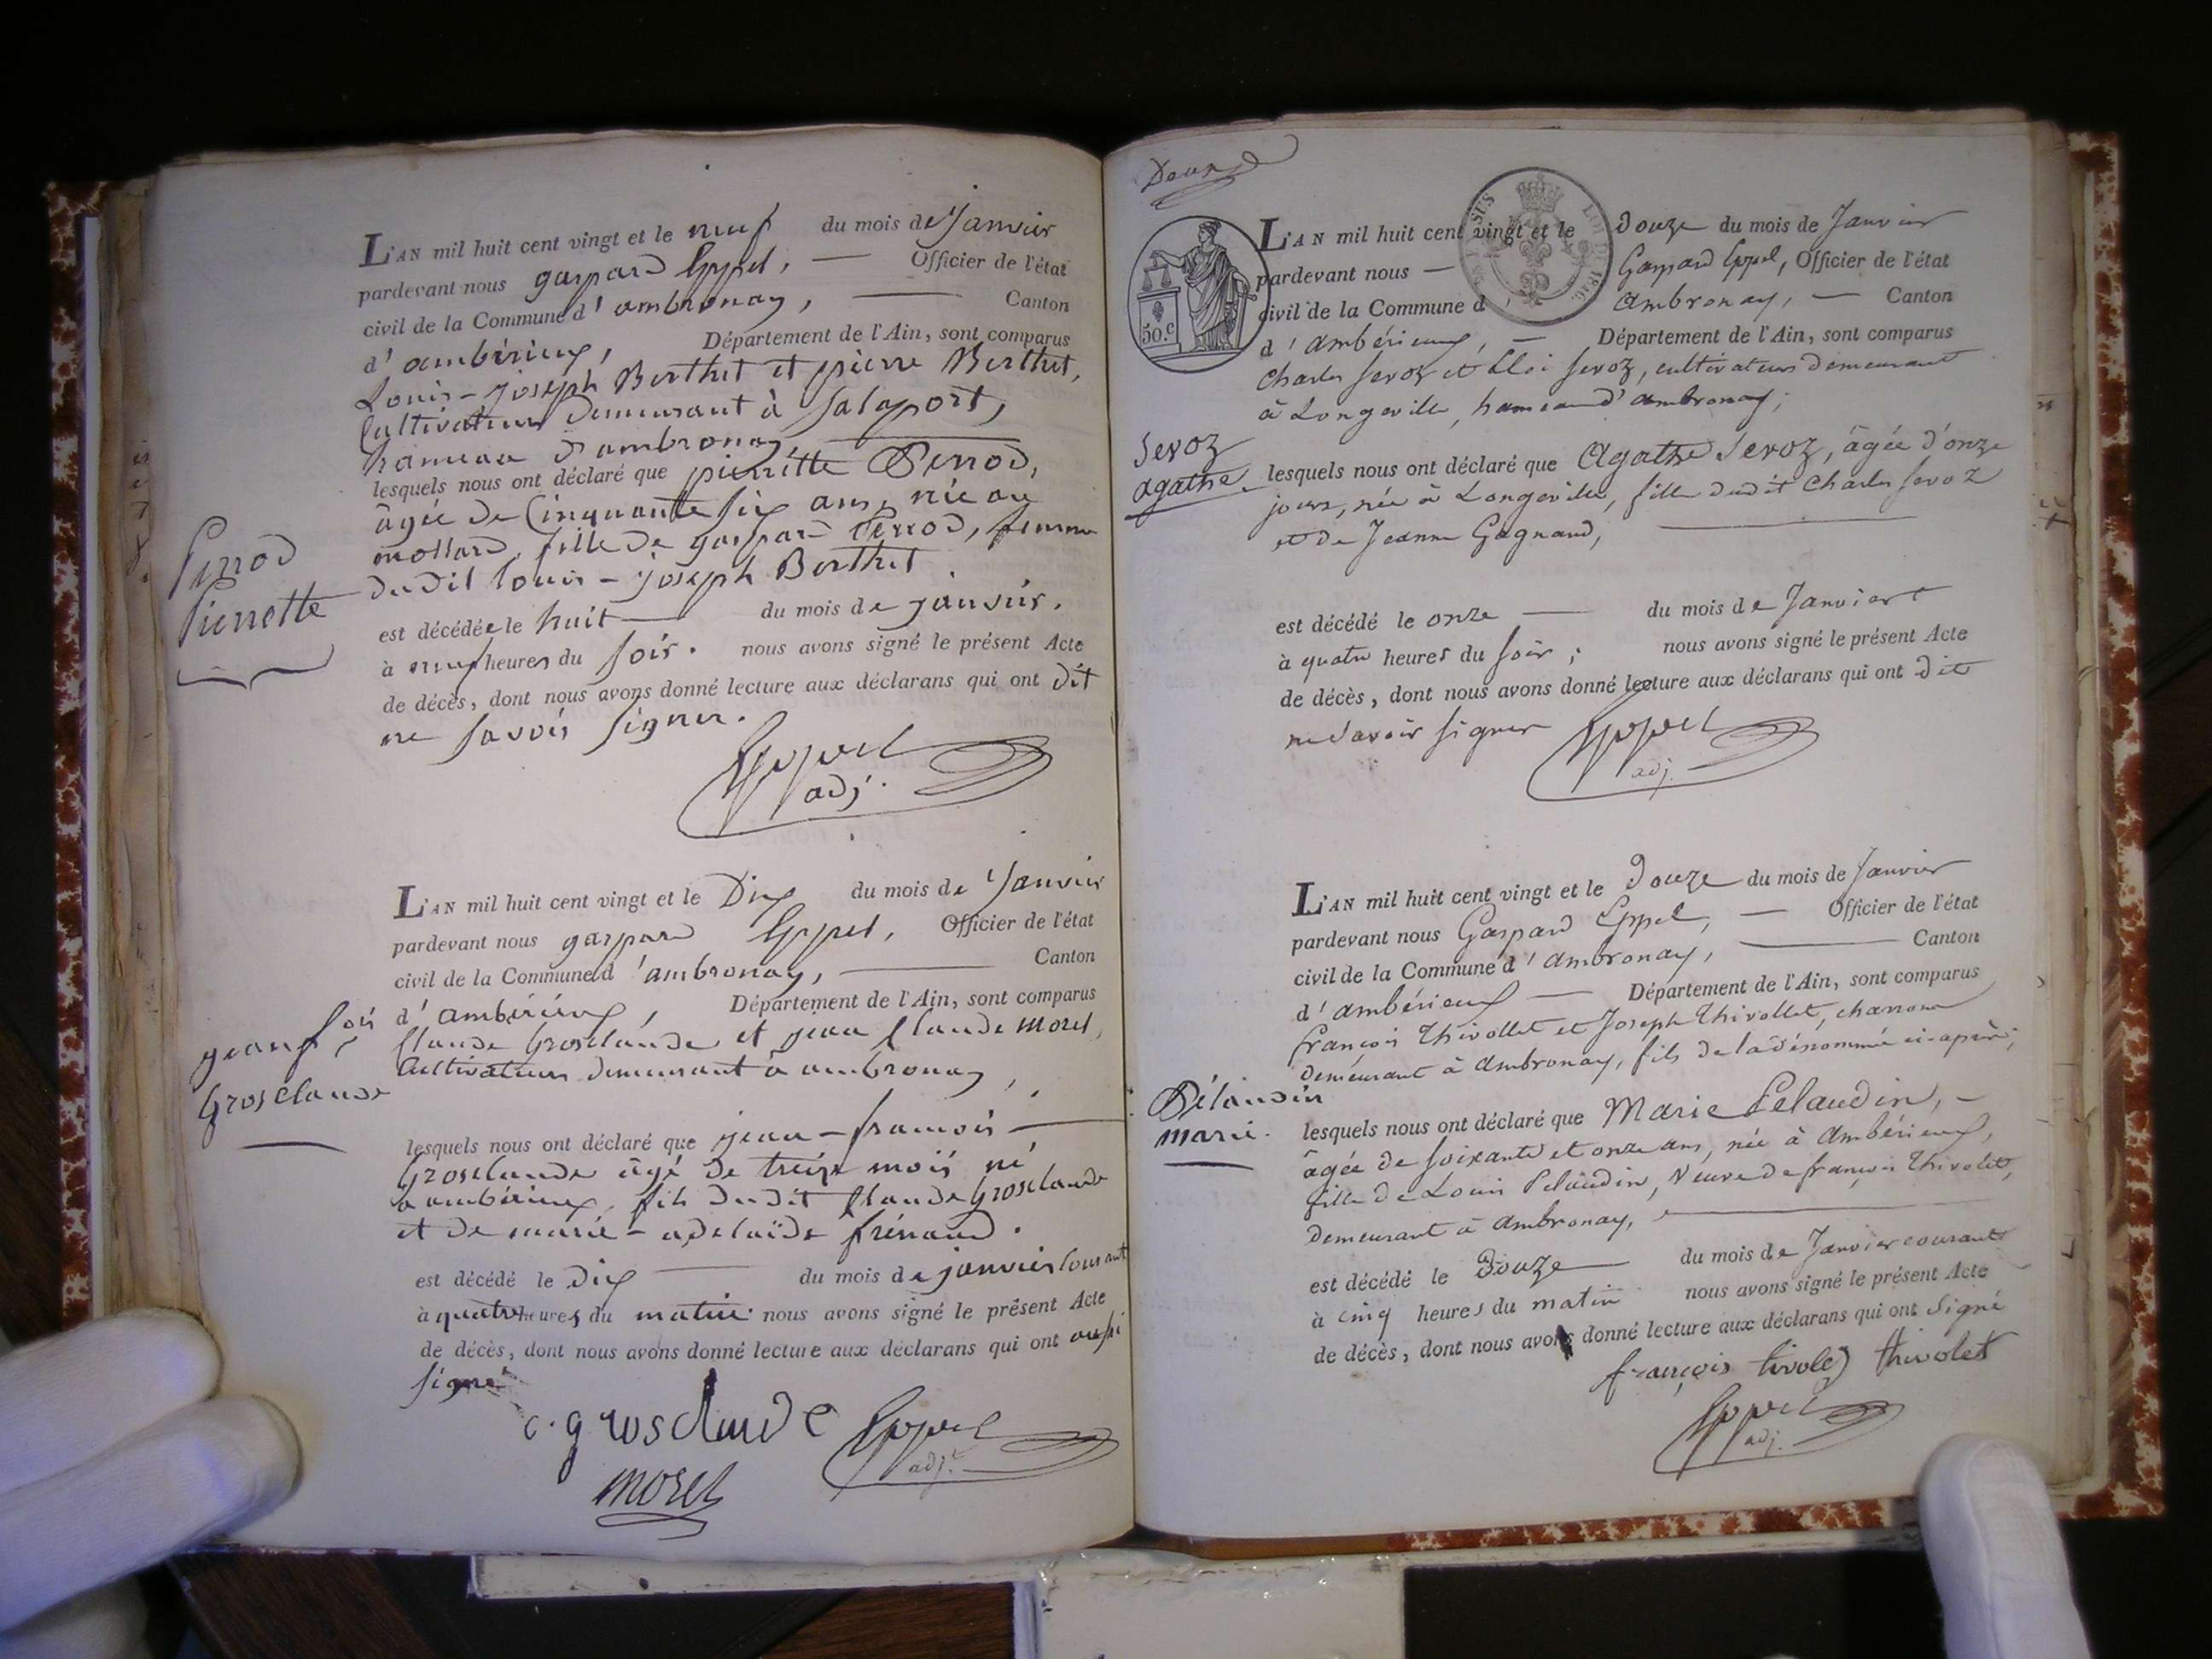 L'AN mil huit cent vingt et le neuf du mois de Janvier
pardevant nous gaspard Eppel, — Officier de l'état
civil de la Commune d'ambronay, — Canton
d'ambérieux, Département de l'Ain, sont comparus
Louis-joseph Berthet et pierre Berthet,
Cultivateurs demeurant à Salaport,
hameau d'ambronay
lesquels nous ont déclaré que pierrette Perrod,
âgée de Cinquante six ans, née au
mollard, fille de gaspard Perrod, femme
dudit louis-joseph Berthet
Perrod
Pierrette
est décédée le huit — du mois de janvier.
à neuf heures du soir. nous avons signé le présent Acte
de décès, dont nous avons donné lecture aux déclarans qui ont dit
ne savoir signer.
Eppel
adj.
L'AN mil huit cent vingt et le Dix du mois de Janvier
pardevant nous gaspard Eppel, Officier de l'état
civil de la Commune d'ambronay, — Canton
d'ambérieux, Département de l'Ain, sont comparus
Claude Grosclaude et jean Claude Morel,
Cultivateurs demeurant à ambronay,
jean fois
Grosclaude
lesquels nous ont déclaré que jean-francois —
Grosclaude âgé de treize mois né
à ambérieux, fils dudit Claude Grosclaude
et de marie-adelaïde frénaud.
est décédé le Dix — du mois de janvier Courant
à quatre heures du matin. nous avons signé le présent Acte
de décès, dont nous avons donné lecture aux déclarans qui ont aussi
signé
c. grosclaude Eppel
adj.
morel
Douze
50.c
L'AN mil huit cent vingt et le Douze du mois de Janvier
pardevant nous — Gaspard Eppel, Officier de l'état
civil de la Commune d'Ambronay, — Canton
d'Ambérieux, — Département de l'Ain, sont comparus
Charles Sevoz et Eloi Sevoz, cultivateurs demeurant
à Longeville, hameau d'Ambronay;
Sevoz
agathe
lesquels nous ont déclaré que Agathe Sevoz, âgée d'onze
jours, née à Longeville, fille dudit Charles Sevoz
et de Jeanne Gagnaud,
est décédé le onze — du mois de Janvier
à quatre heures du soir; nous avons signé le présent Acte
de décès, dont nous avons donné lecture aux déclarans qui ont dit
ne savoir signer
Eppel
adj.
L'AN mil huit cent vingt et le Douze du mois de Janvier
pardevant nous Gaspard Eppel, — Officier de l'état
civil de la Commune d'Ambronay, — Canton
d'Ambérieux — Département de l'Ain, sont comparus
François Thivollet et Joseph Thivollet, charron
demeurant à Ambronay, fils de la dénommée ci-après;
Pélaudin
marie.
lesquels nous ont déclaré que Marie Pelaudin, —
âgée de soixante et onze ans, née à Ambérieux,
fille de Louis Pelaudin, Veuve de françois Thivolet,
demeurant à Ambronay,
est décédé le Douze — du mois de Janvier courant
à cinq heures du matin nous avons signé le présent Acte
de décès, dont nous avons donné lecture aux déclarans qui ont signé
françois tivoley thivolet
Eppel
adj.